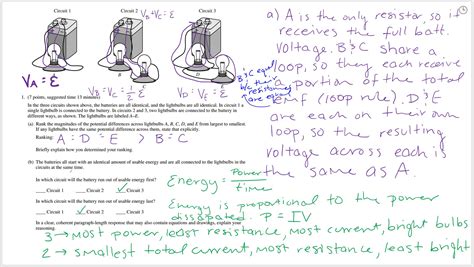 Circuit 1
Circuit 2
Circuit 3
V_B+V_C = ε
V_A = ε
V_B = V_C = 1/2 ε
V_D = V_E = ε
B
D
1. (7 points, suggested time 13 minutes)
In the three circuits shown above, the batteries are all identical, and the lightbulbs are all identical. In circuit 1 a
single lightbulb is connected to the battery. In circuits 2 and 3, two lightbulbs are connected to the battery in
different ways, as shown. The lightbulbs are labeled A–E.
(a) Rank the magnitudes of the potential differences across lightbulbs A, B, C, D, and E from largest to smallest.
If any lightbulbs have the same potential difference across them, state that explicitly.
Ranking: A = D = E > B = C
Briefly explain how you determined your ranking.
(b) The batteries all start with an identical amount of usable energy and are all connected to the lightbulbs in the
circuits at the same time.
In which circuit will the battery run out of usable energy first?
___ Circuit 1 ___ Circuit 2 ___ Circuit 3
In which circuit will the battery run out of usable energy last?
___ Circuit 1 ___ Circuit 2 ___ Circuit 3
In a clear, coherent paragraph-length response that may also contain equations and drawings, explain your
reasoning.
a) A is the only resistor, so it
receives the full batt.
voltage. B&C share a
loop, so they each receive
a portion of the total
emf (loop rule). D&E
are each on their own
loop, so the resulting
voltage across each is
the same as A.
B&C equal
b/c their
resistances
are eq.
Energy = Power/time
Energy is proportional to the power
dissipated. P = IV
3 → most power, least resistance, most current, bright bulbs
2 → smallest total current, most resistance, least bright